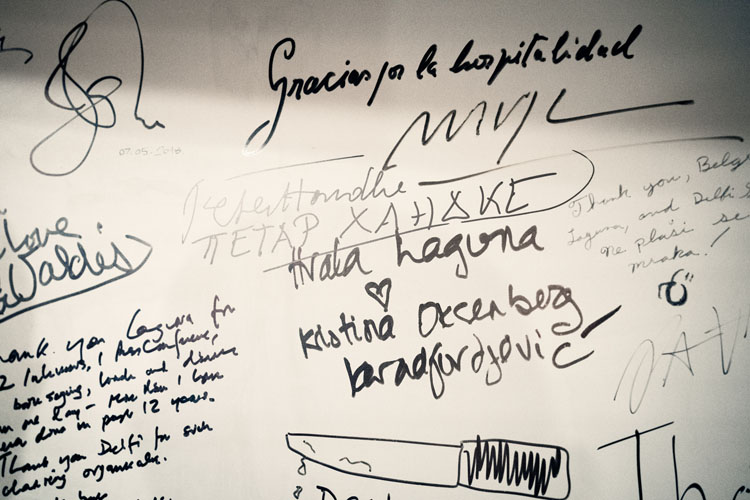 Gracias por la hospitalidad
07.05.2018
Peter Handke
ПЕТАР ХАНДКЕ
Hvala Laguna
Kristina Oxenberg
Karadjordjević
Thank you, Belgr
Laguna, and Delfi s
ne plaši se
mraka!
love
Waldis
hank you Laguna for
2 Interviews, 1 Press Conference,
book signing, lunch and dinner
in one day - More than I have
ever done in past 12 years.
Thank you Delfi for such
charing organisation.
Th